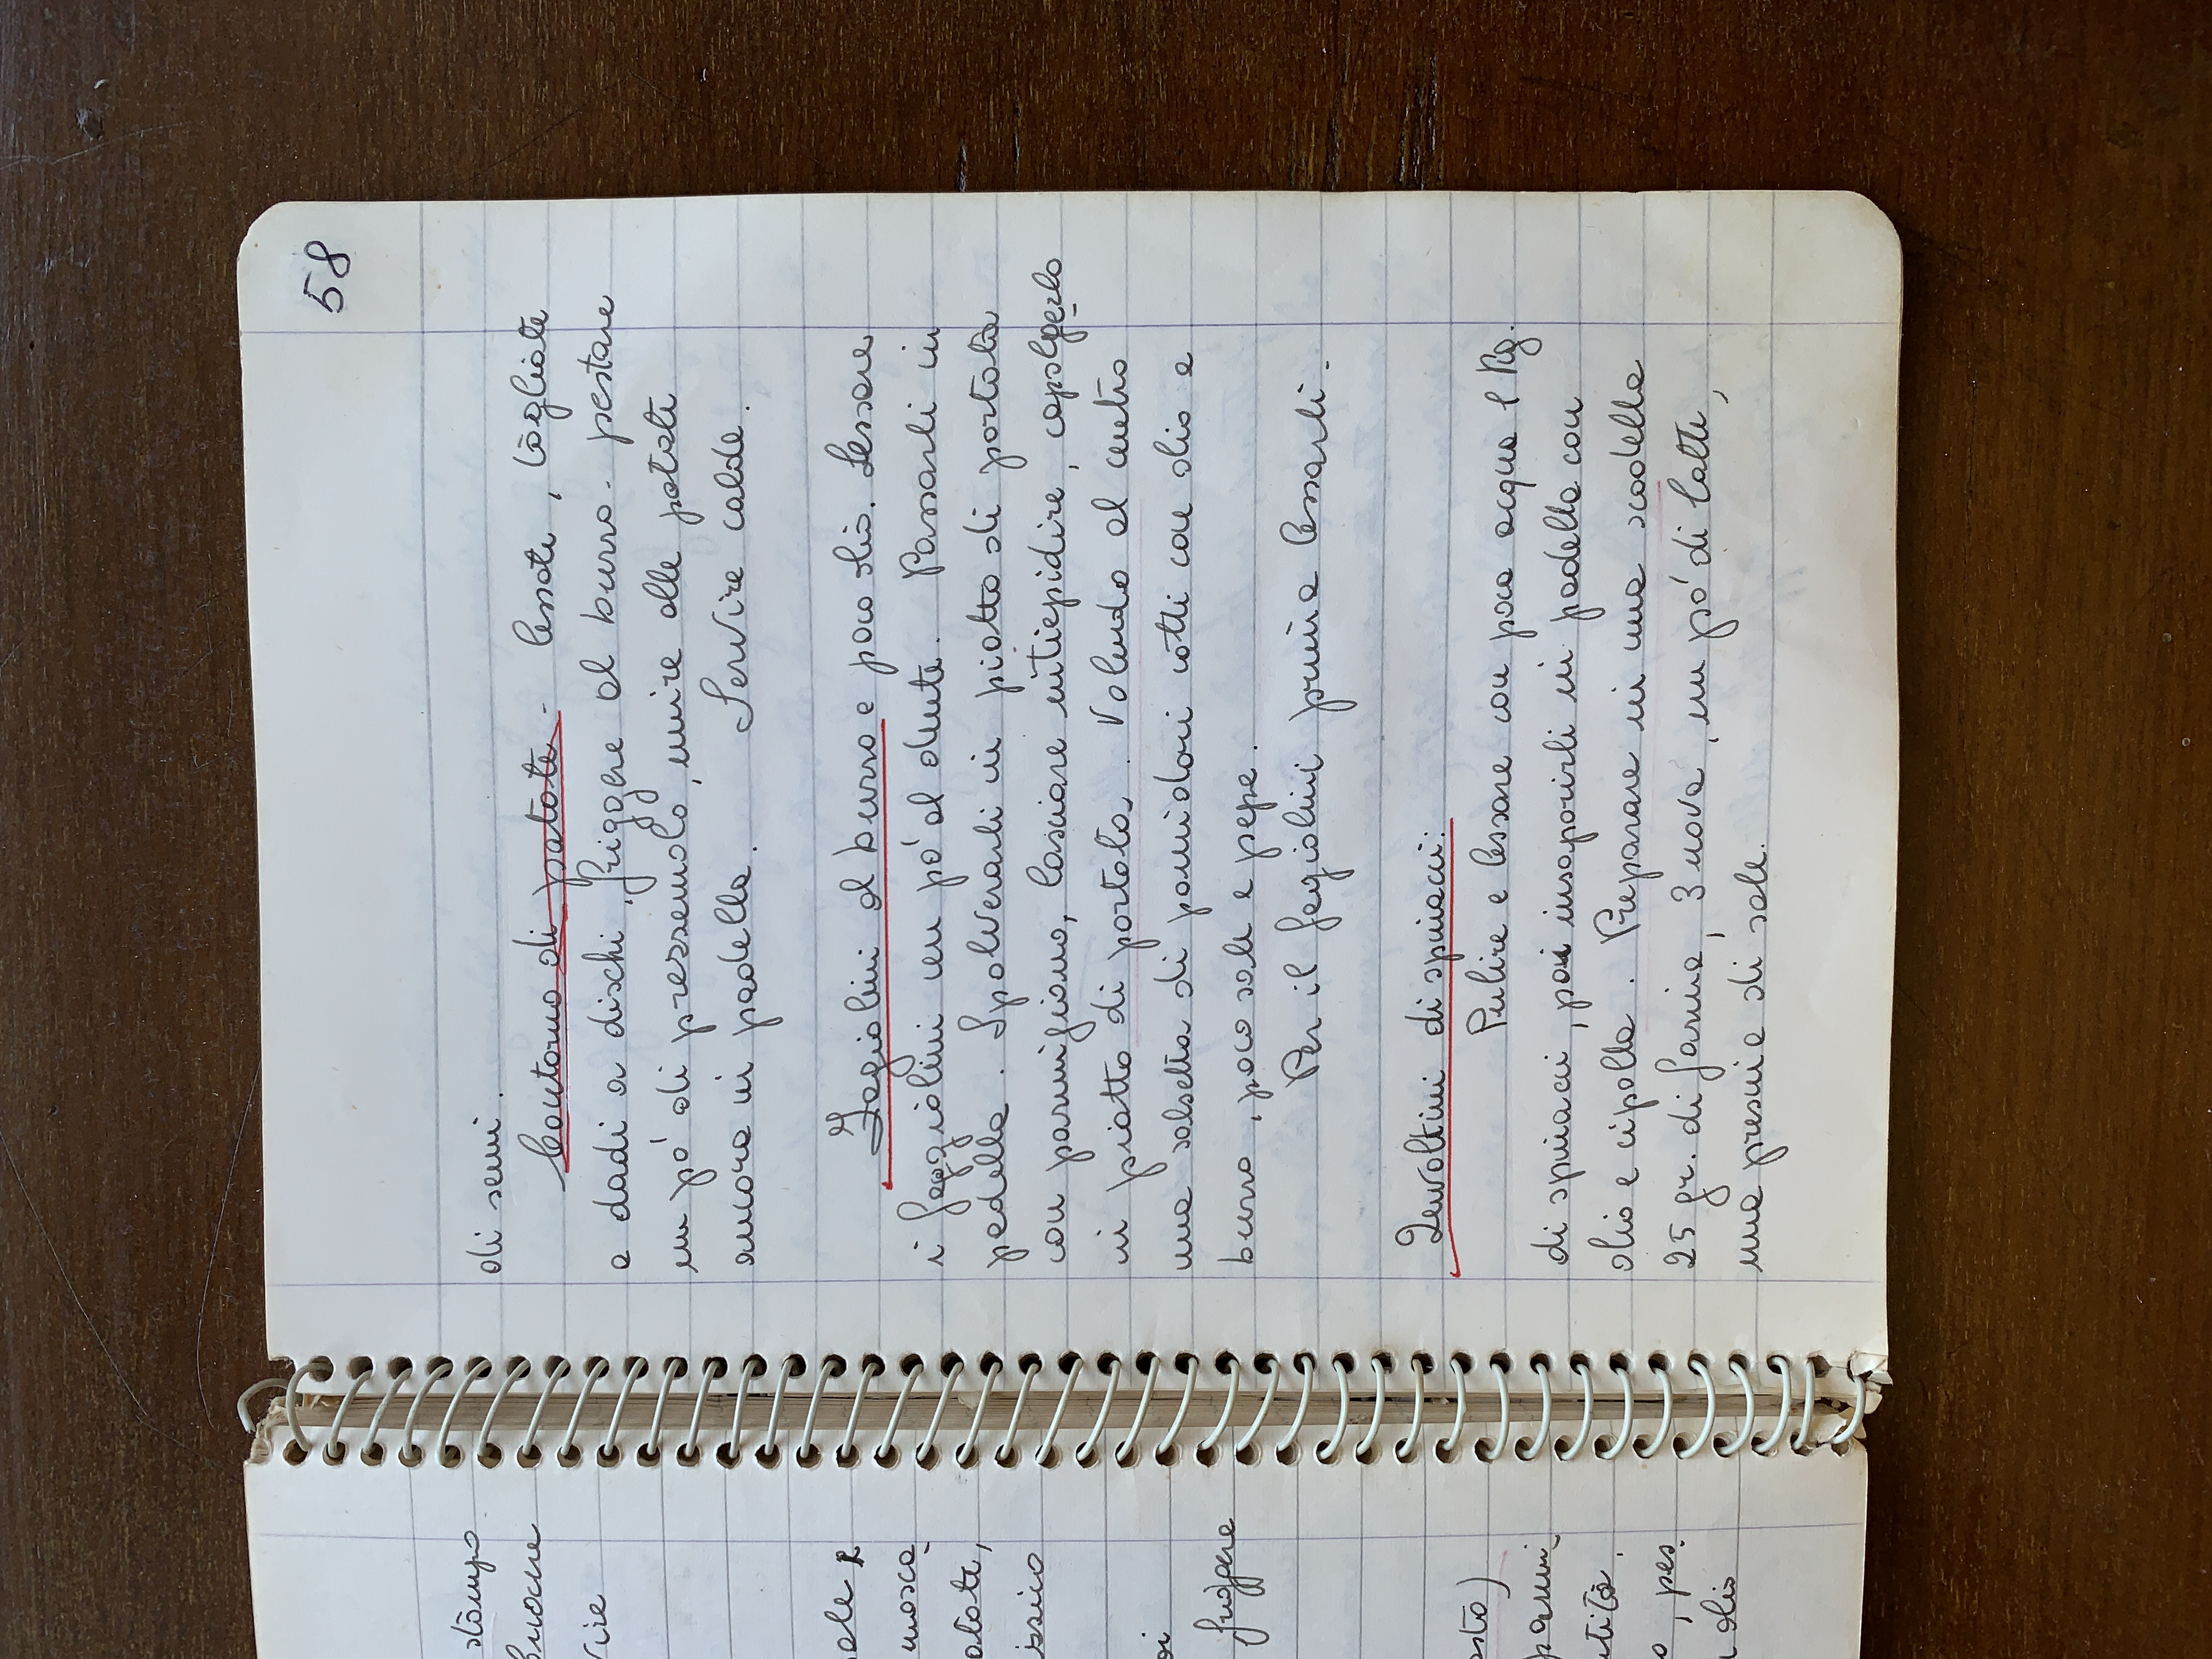 58
stampo
cuocere
vire
sale e
mosca
patate,
issico
oi
friggere
asto)
parmi
ntità.
o, pes
olio
di semi.
Contorno di patate - lessate, tagliate
a dadi a dischi, friggere al burro - pestare
un pó di prezzemolo, unire alle patate
ancora in padella. Servire calde.
Fagiolini al burro e poco olio. Lessare
i faggiolini un pó al dente. Passarli in
padella. Spolverarli in piatto di portata
con parmigiano, lasciare intiepidire, capolgerlo
in piatto di portata. Volendo al centro
una salsetta di pomidori cotti con olio e
burro, poco sale e pepe.
Per il fagiolini prima lessarli.
Involtini di spinaci:
Pulire e lessare con poca acqua 1 Kg.
di spinaci, poi insaporirli in padella con
olio e cipolla. Preparare in una scodella
25 gr. di farina, 3 uova, un pó di latte,
una presina di sale.